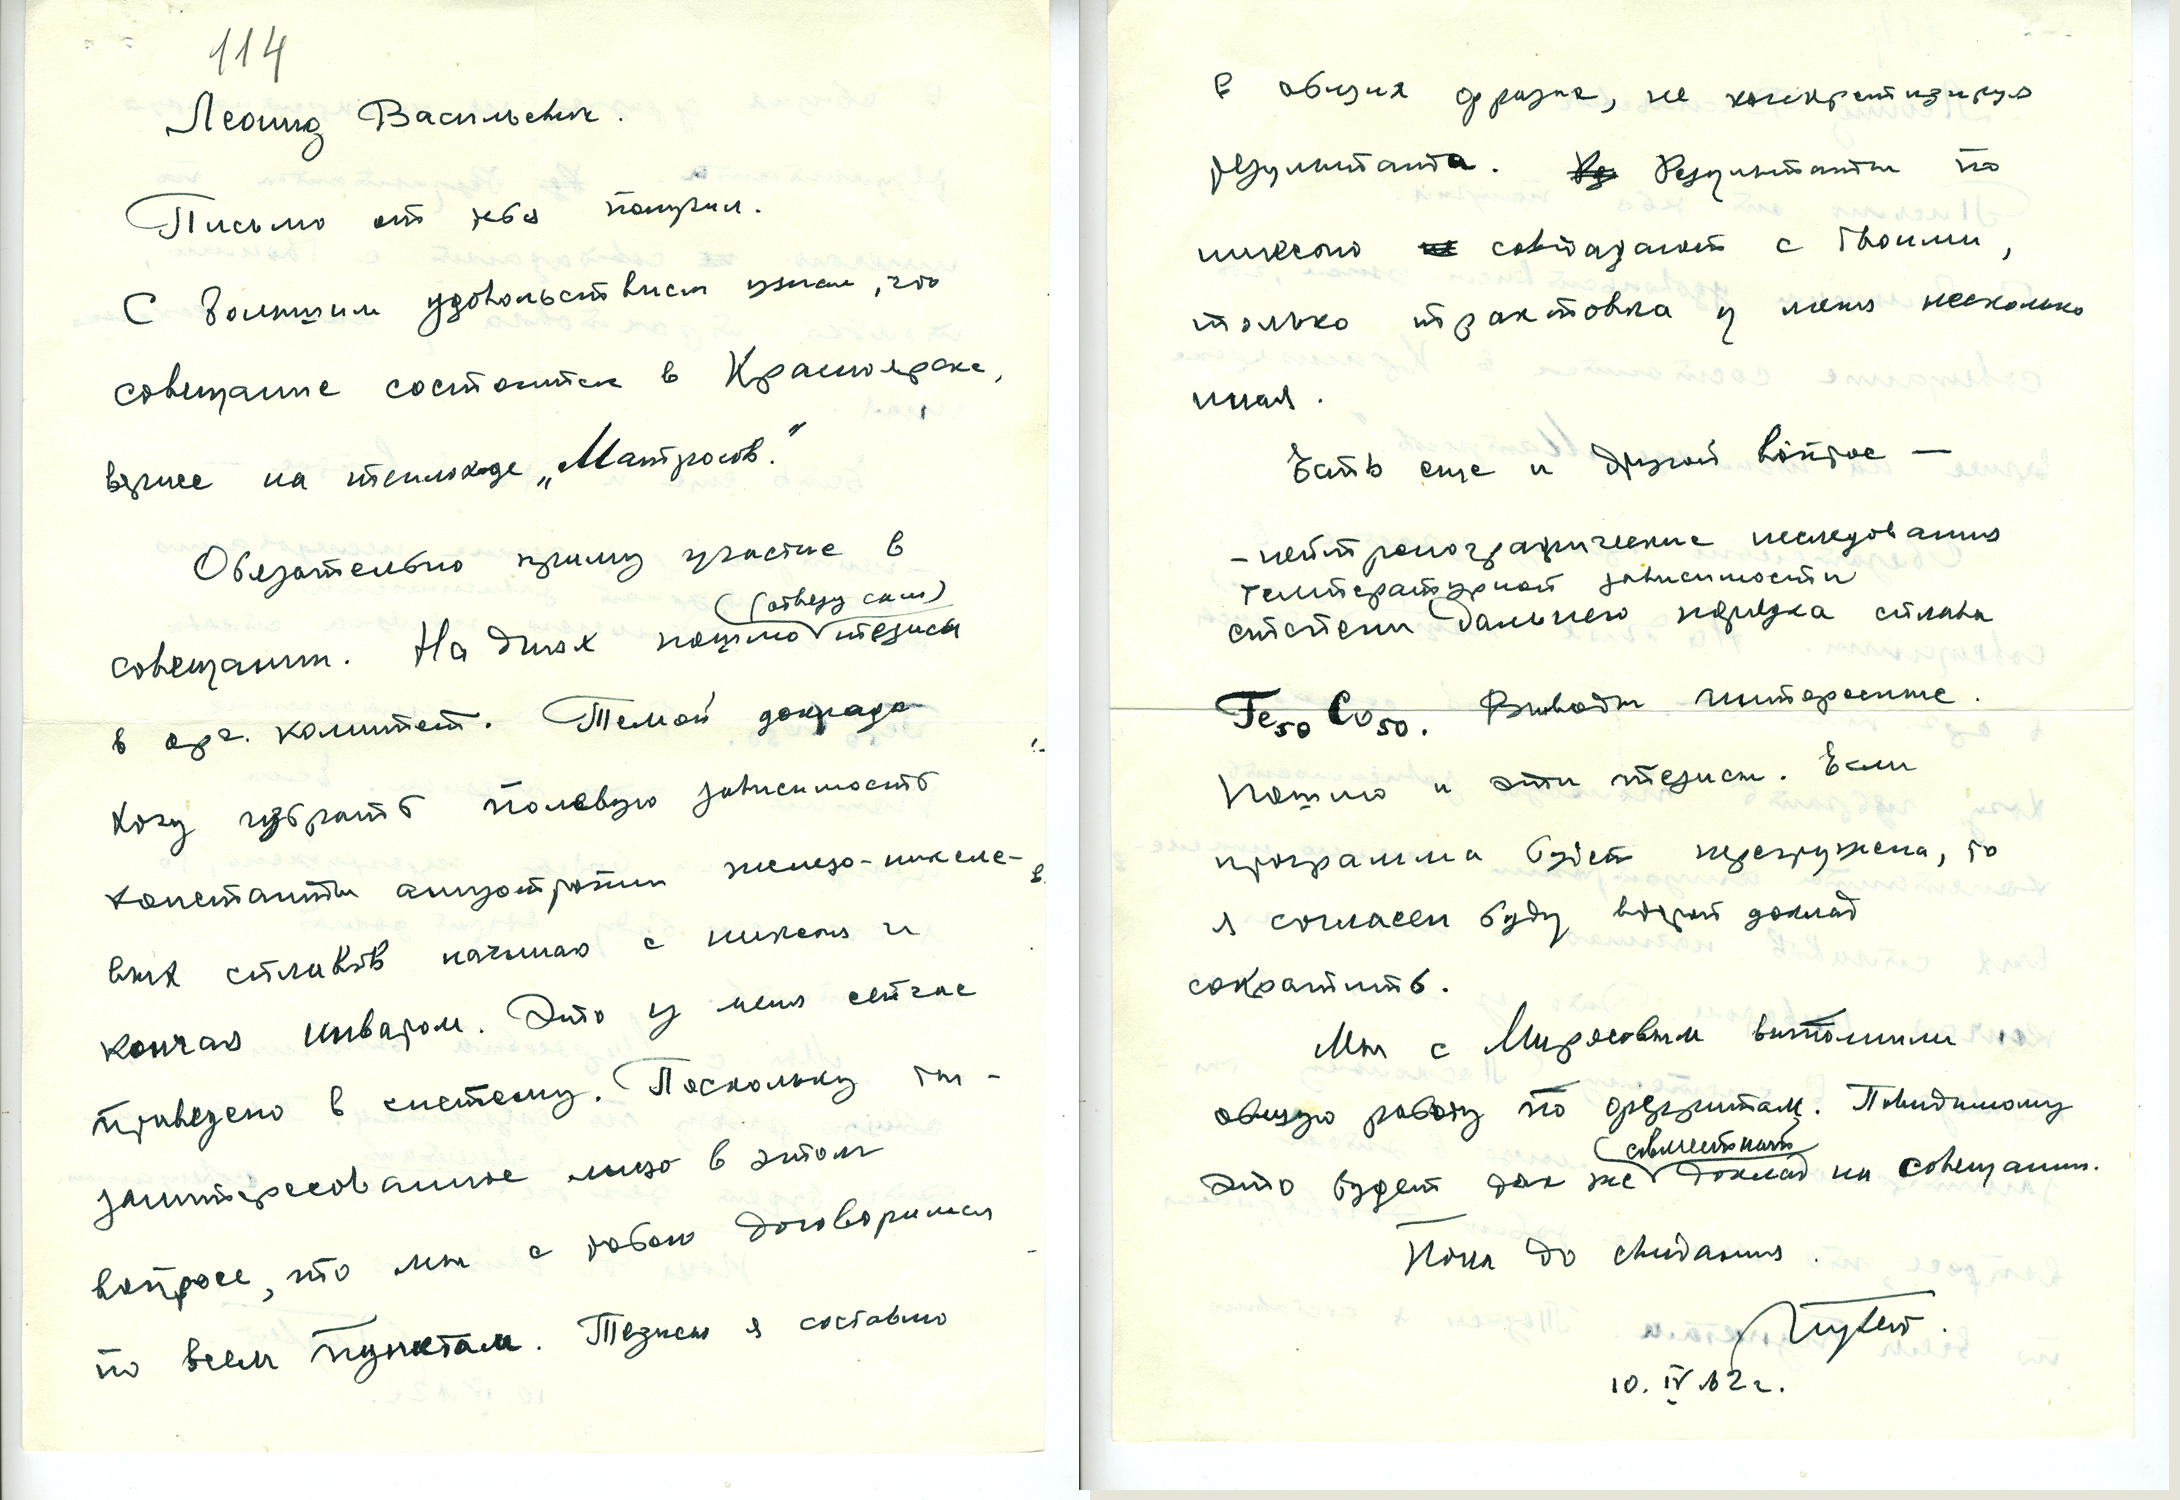 114
Леонид Васильевич.
Письмо от тебя получил.
С большим удовольствием узнал, что
совещание состоится в Красноярске,
вернее на теплоходе „Матросов."
Обязательно приму участие в
(отвезу сам)
совещании. На днях пошлю тезисы
в орг. комитет. Темой доклада
хочу избрать полевую зависимость
константы анизотропии железо-никеле-
вых сплавов начиная с никеля и
кончая инваром. Это у меня сейчас
приведено в систему. Поскольку ты -
заинтересованное лицо в этом
вопросе, то мы с тобою договоримся
по всем пунктам. Тезисы я составлю
в общих фразах, не конкретизируя
результата. Результаты по
никелю совпадают с твоими,
только трактовка у меня несколько
иная.
Есть еще и другой вопрос —
- нейтронографические исследования
температурной зависимости
степени дальнего порядка сплава
Fe50 Co50. Выводы интересные.
Пошлю и эти тезисы. Если
программа будет перегружена, то
я согласен буду второй доклад
сократить.
Мы с Мирясовым выполнили
общую работу по ферритам. Повидимому
совместный
это будет так же доклад на совещании.
Пока до свидания.
10. IV 62 г.